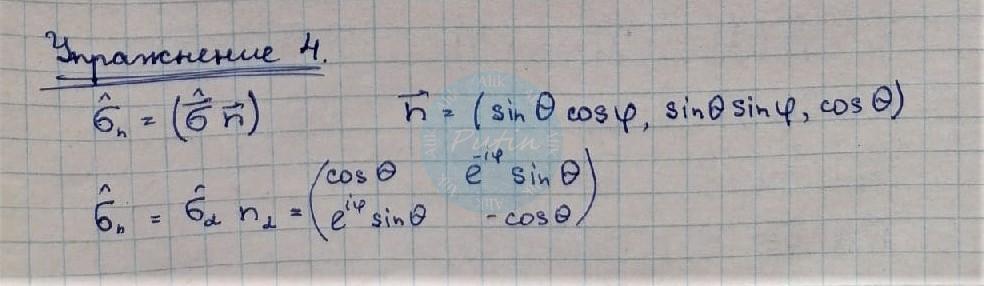 Упражнение 4.
σ̂ₙ = (σ̂⃗ n⃗)    n⃗ = (sin θ cos φ, sin θ sin φ, cos θ)
σ̂ₙ = σ̂_α n_α = ( cos θ    e^{-iφ} sin θ
e^{iφ} sin θ    - cos θ )
Putin